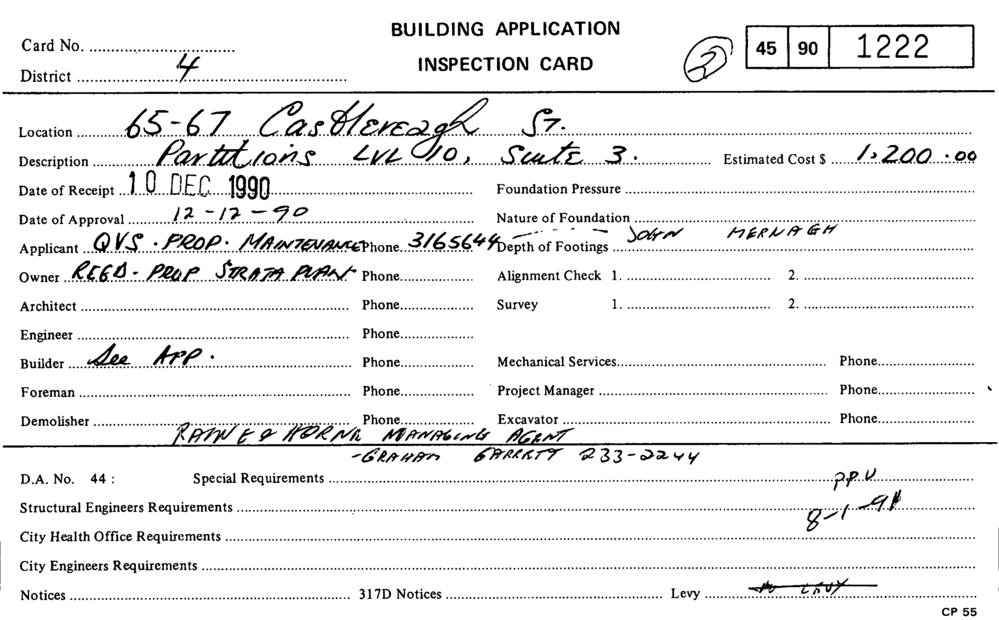 BUILDING APPLICATION
INSPECTION CARD
Card No.
District 4
2
45 90 1222
Location 65-67 Castlereagh ST.
Description Partitions LVL 10, Suite 3. Estimated Cost $ 1,200.00
Date of Receipt 10 DEC 1990 Foundation Pressure
Date of Approval 12-12-90 Nature of Foundation
Applicant QVS. PROP. MAINTENANCE Phone 3165644 Depth of Footings JOHN MERNAGH
Owner REGD. PROP STRATA PLAN Phone Alignment Check 1. 2.
Architect Phone Survey 1. 2.
Engineer Phone
Builder See APP. Phone Mechanical Services Phone
Foreman Phone Project Manager Phone
Demolisher Phone Excavator Phone
RAINE & HORNE MANAGING AGENT
-GRAHAM GARRETT 233-2244
D.A. No. 44 : Special Requirements PPU
Structural Engineers Requirements 8-1-91
City Health Office Requirements
City Engineers Requirements
Notices 317D Notices Levy NO LEVY
CP 55